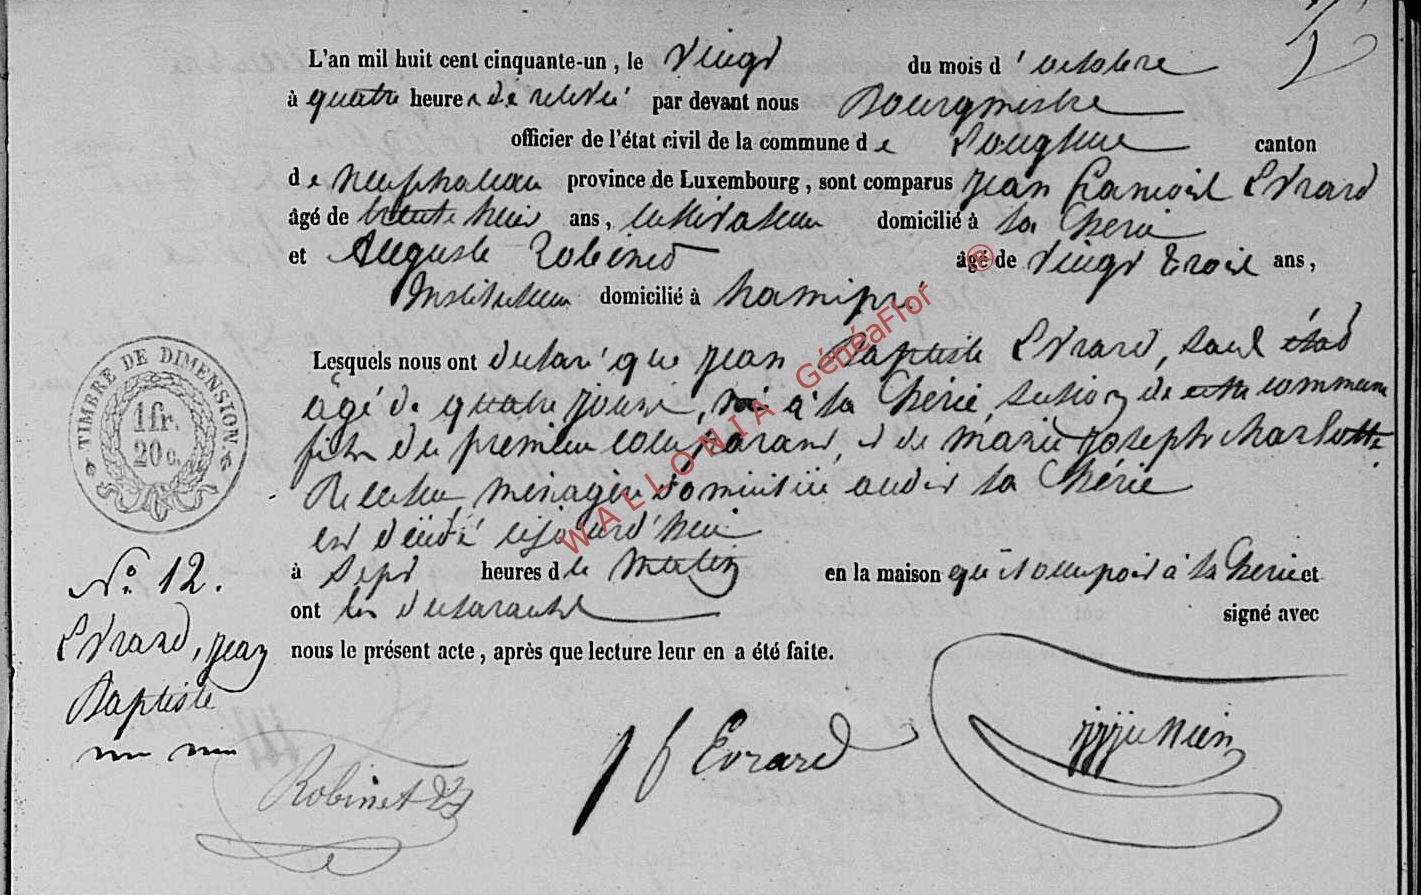 L'an mil huit cent cinquante-un, le vingt du mois d'octobre
à quatre heures de relevée par devant nous Bourgmestre
officier de l'état civil de la commune de Lougliere canton
de neufchateau province de Luxembourg, sont comparus jean francois Evrard
âgé de trente huit ans, cultivateur domicilié à la Chérie
et Auguste Robinet âgé de vingt trois ans,
Instituteur domicilié à hamipré
Lesquels nous ont declaré que jean Baptiste Evrard, sans état
âgé de quatre jours, né à la Chérie, section de cette commune
fils du premier comparant, et de marie joseph charlotte
menagère domiciliée audit la Chérie
est décédé cejourd'hui
à sept heures du matin en la maison qu'il occupoit à la Chérie et
ont les declarants signé avec
nous le présent acte, après que lecture leur en a été faite.
TIMBRE DE DIMENSION
1 fr.
20 c.
No. 12.
Evrard, jean
Baptiste
Robinet
j f Evrard
WALLONIA GénéaFlor ®